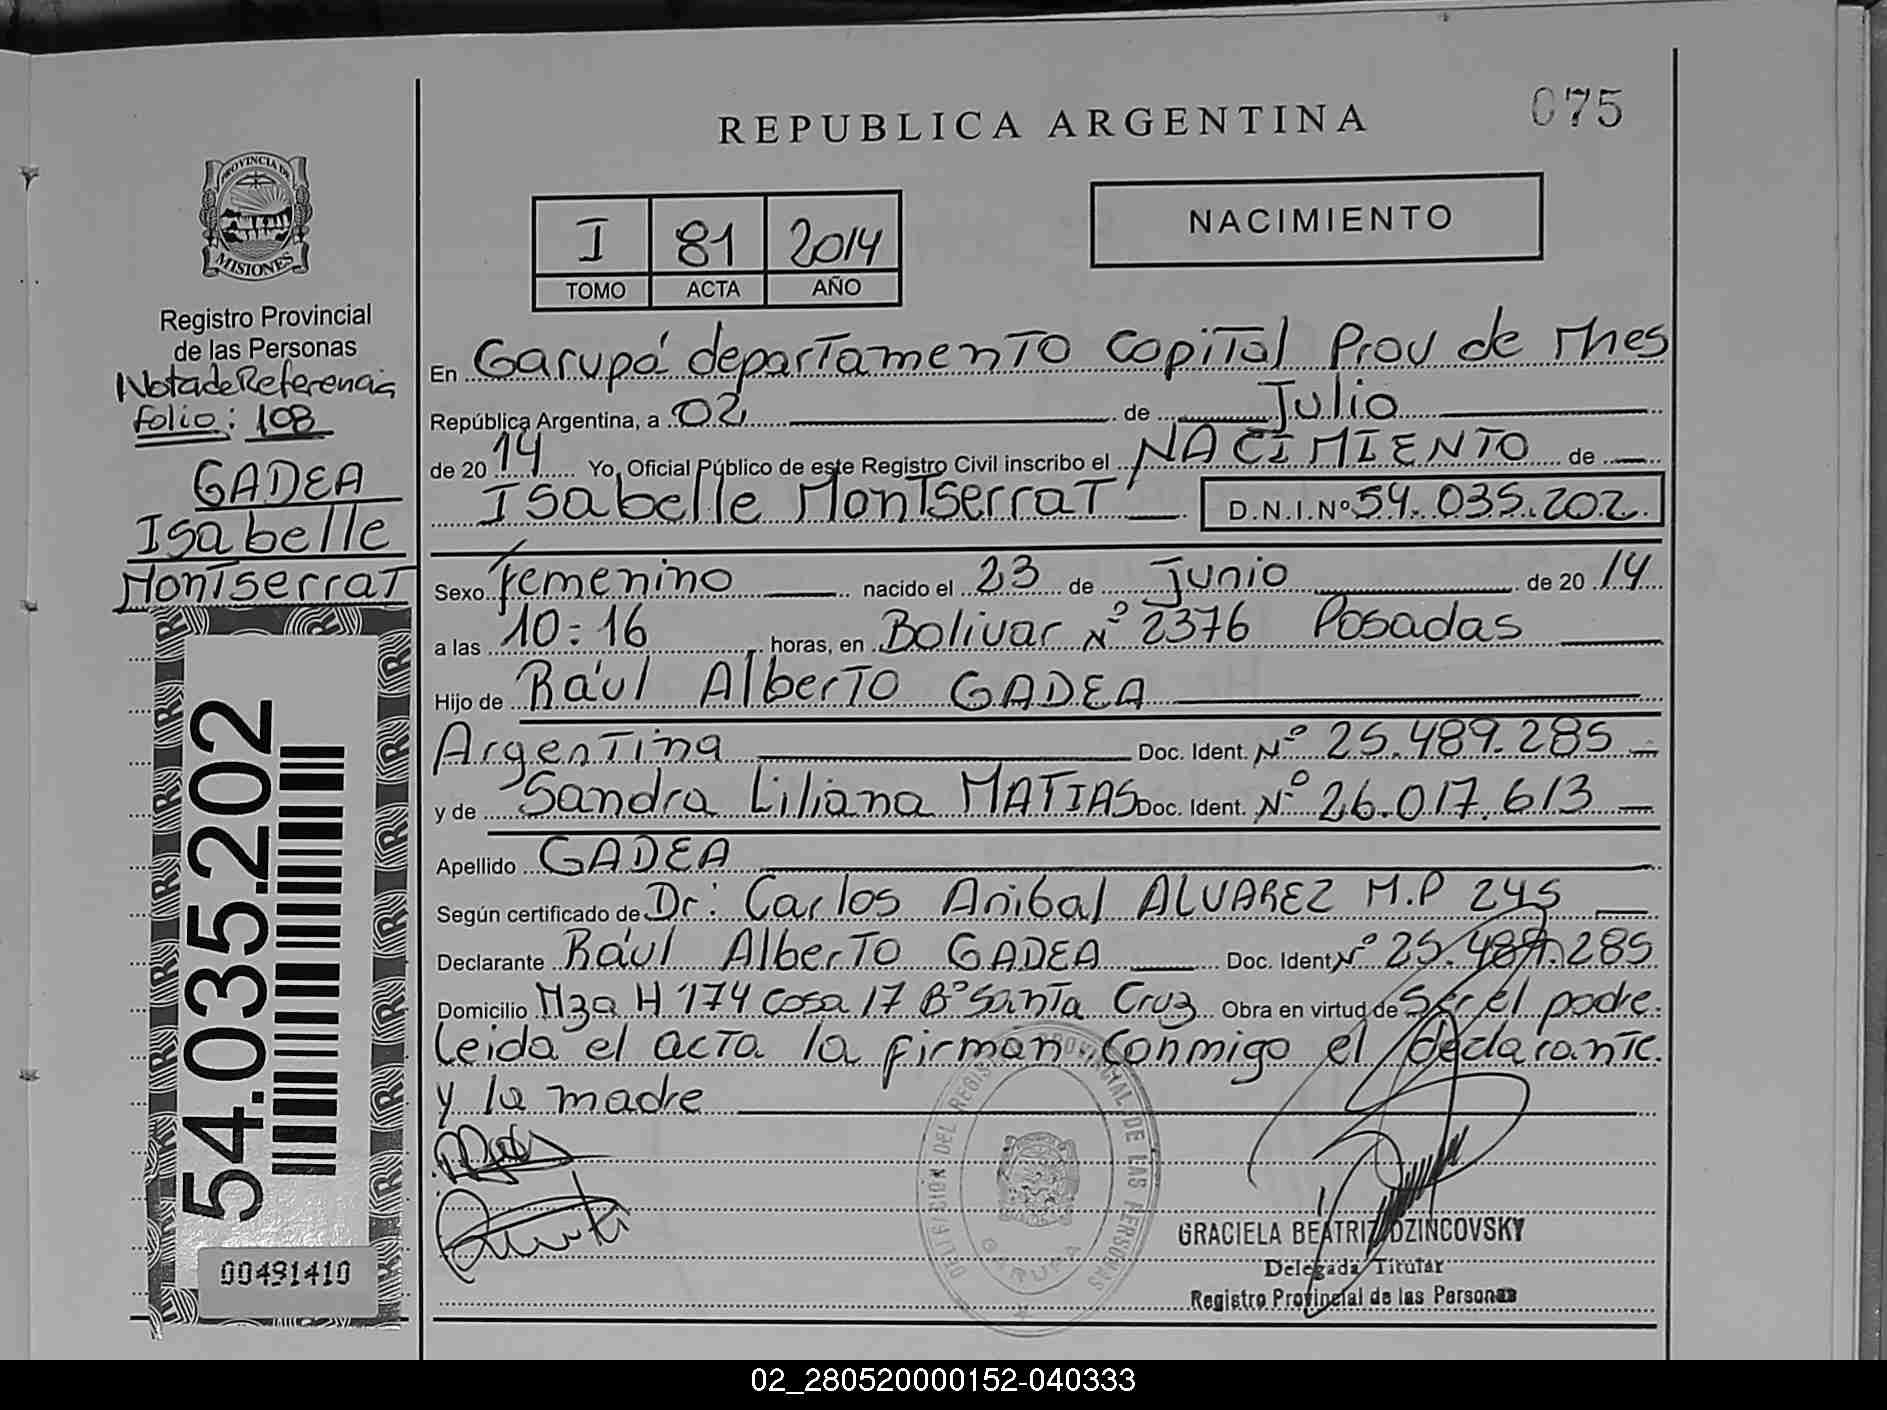 075
REPUBLICA ARGENTINA
PROVINCIA DE
MISIONES
Registro Provincial
de las Personas
Nota de Referencia
folio: 108
GADEA
Isabelle
Montserrat
54.035.202
00491410
I 81 2014
TOMO ACTA AÑO
NACIMIENTO
En Garupá departamento Capital Prov de Mnes
República Argentina, a 02 de Julio
de 20 14 Yo, Oficial Público de este Registro Civil inscribo el NACIMIENTO de
Isabelle Montserrat D.N.I.Nº 54.035.202
Sexo femenino nacido el 23 de Junio de 20 14
a las 10:16 horas, en Bolivar Nº 2376 Posadas
Hijo de Raúl Alberto GADEA
Argentina Doc. Ident. Nº 25.489.285
y de Sandra Liliana MATIAS Doc. Ident. Nº 26.017.613
Apellido GADEA
Según certificado de Dr: Carlos Anibal ALVAREZ M.P 245
Declarante Raúl Alberto GADEA Doc. Ident Nº 25.489.285
Domicilio Mza H 174 casa 17 Bº Santa Cruz Obra en virtud de Ser el padre.
Leida el acta la firman conmigo el declarante
y la madre
DEL REGISTRO PROVINCIAL DE LAS PERSONAS
GARUPA
GRACIELA BEATRIZ DZINCOVSKY
Delegada Titular
Registro Provincial de las Personas
02_280520000152-040333